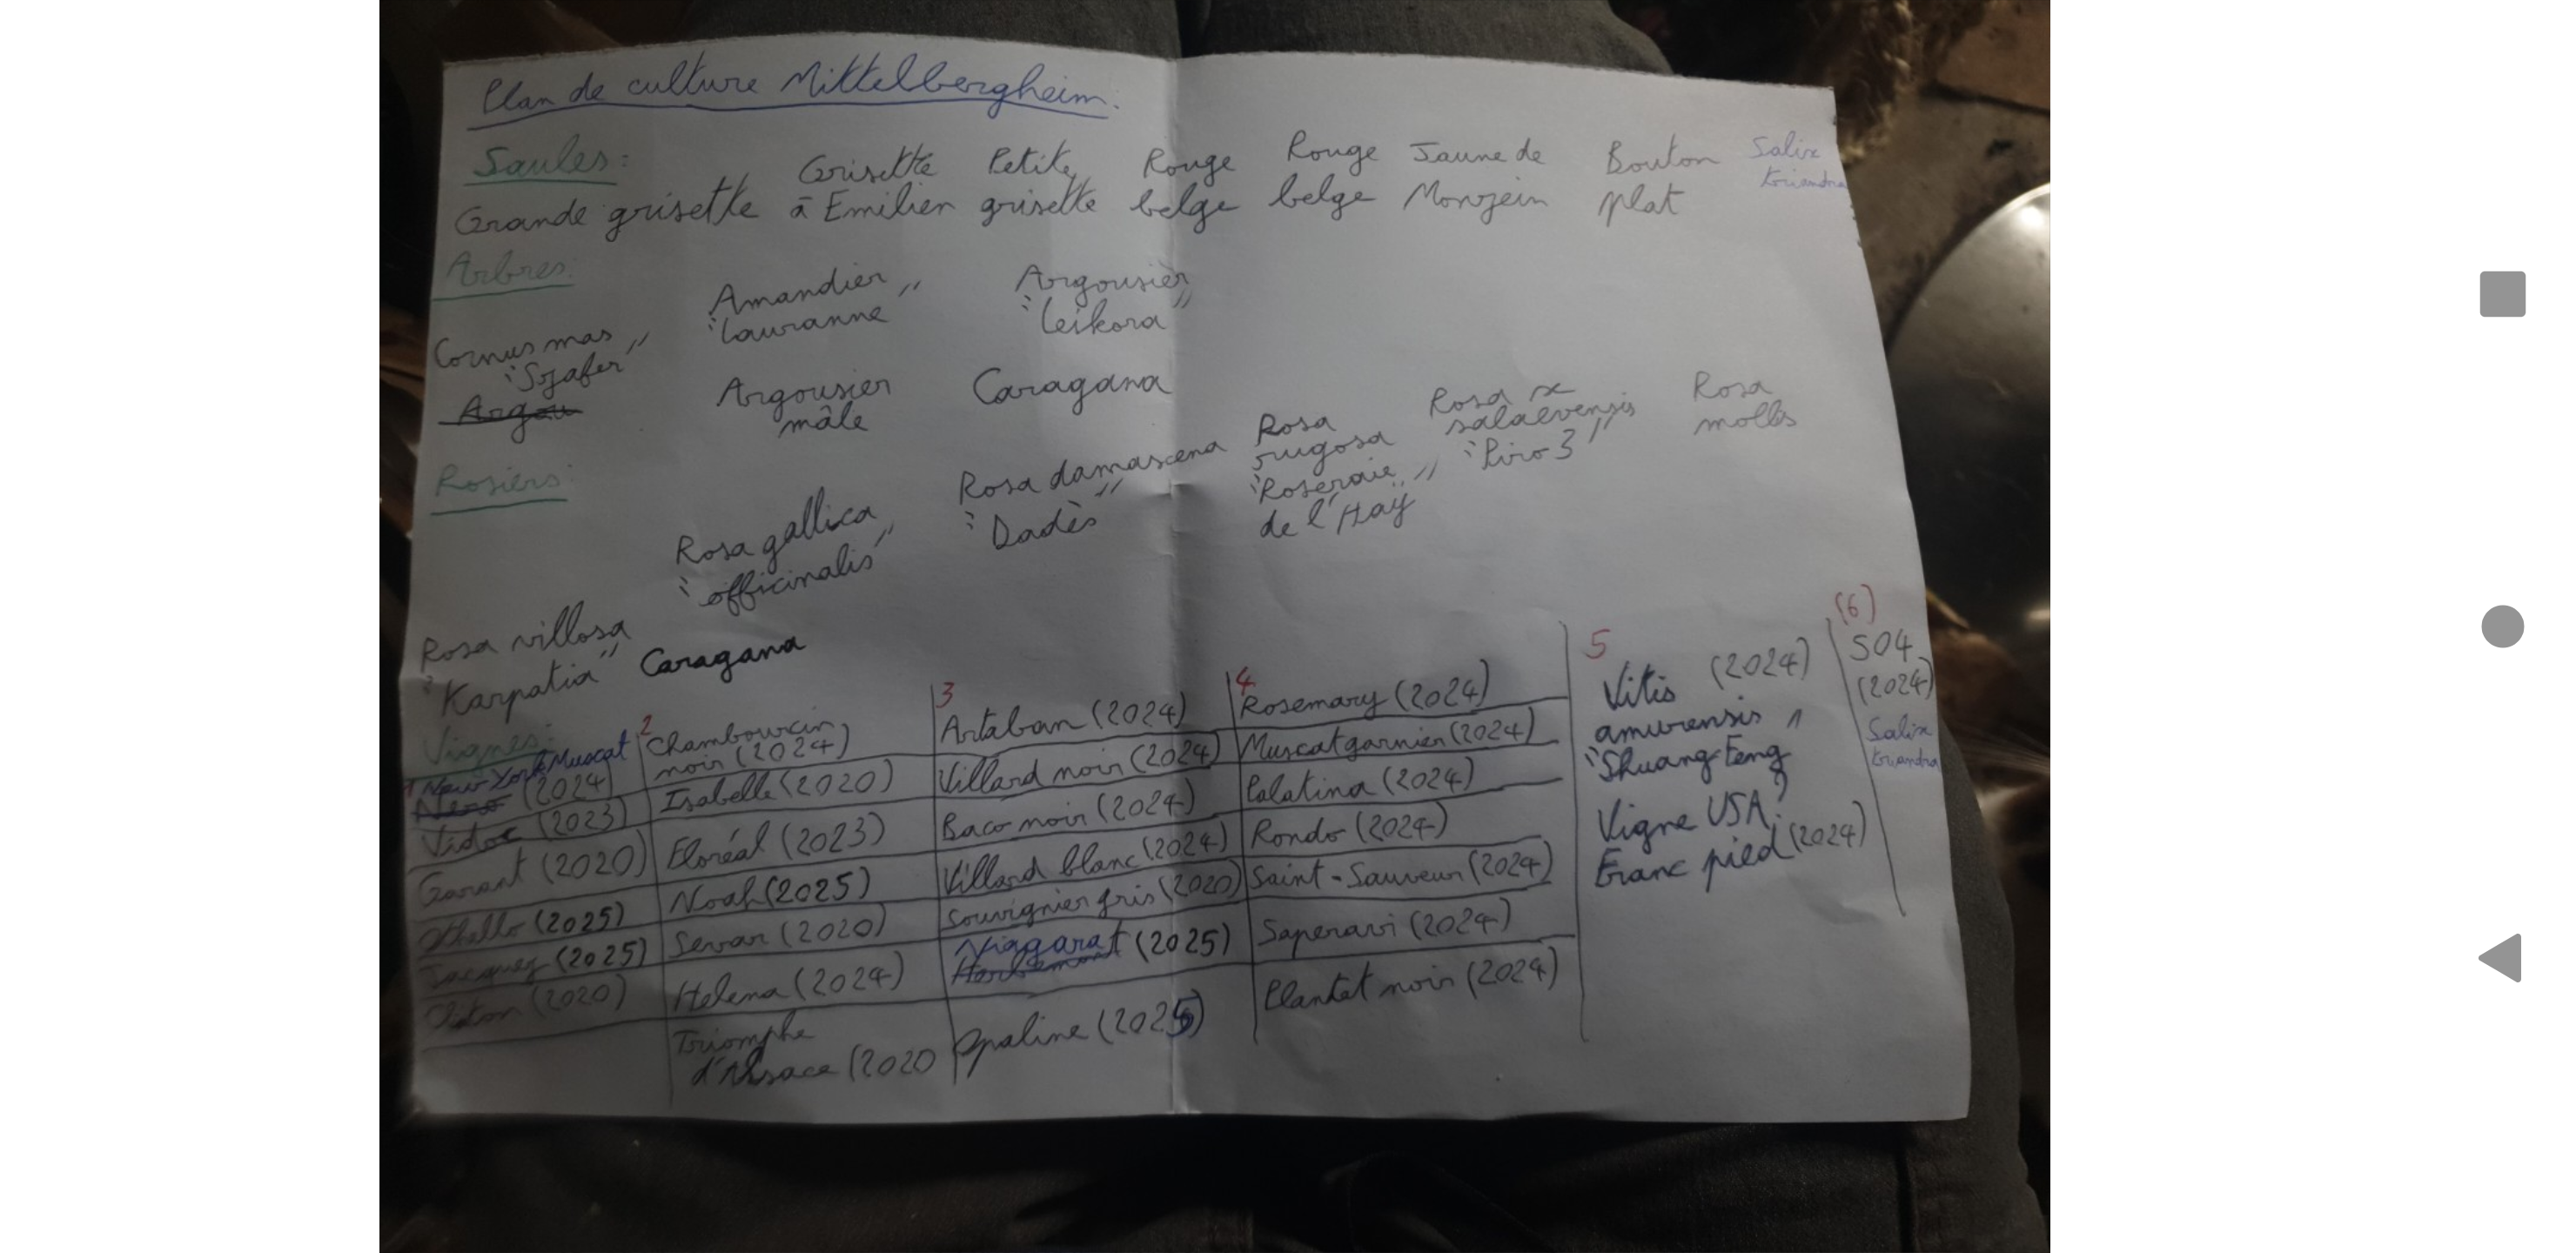 Plan de culture Mittelbergheim.
Saules:
Grande grisette
Grisette
à Emilien
Petite
grisette
Rouge
belge
Rouge
belge
Jaune de
Monzein
Bouton
plat
Salix
triandra
Arbres:
Cornus mas
"Szafer"
Amandier
"Lauranne"
Argousier
"Leikora"
Argou
Argousier
mâle
Caragana
Rosiers:
Rosa villosa
"Karpatia"
Rosa gallica
"officinalis"
Rosa damascena
"Dadès"
Rosa
rugosa
"Roseraie
de l'Haÿ"
Rosa x
salaevensis
"Piro 3"
Rosa
mollis
Caragana
Vignes:
1 New York Muscat
Nero (2024)
Vidoc (2023)
Garant (2020)
Othello (2025)
Jacquez (2025)
Clinton (2020)
2
Chambourcin
noir (2024)
Isabelle (2020)
Floréal (2023)
Noah (2025)
Sevar (2020)
Helena (2024)
Triomphe
d'Alsace (2020
3
Artaban (2024)
Villard noir (2024)
Baco noir (2024)
Villard blanc (2024)
Souvignier gris (2020)
Niagara
Herbemont (2025)
Opaline (2025)
4
Rosemary (2024)
Muscat garnier (2024)
Palatina (2024)
Rondo (2024)
Saint-Sauveur (2024)
Saperavi (2024)
Plantet noir (2024)
5
Vitis (2024)
amurensis
"Shuang Feng"
Vigne USA?
Franc pied (2024)
(6)
SO4
(2024)
Salix
triandra